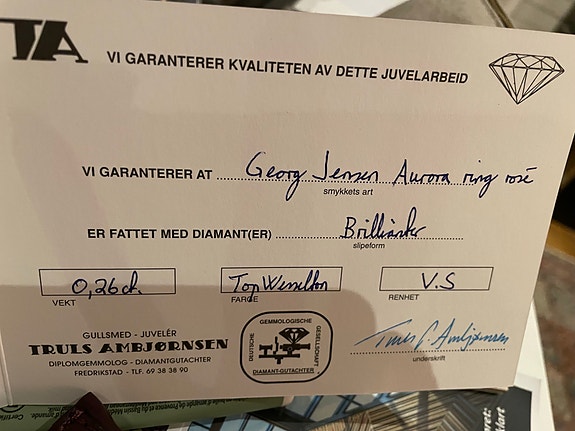 TA
VI GARANTERER KVALITETEN AV DETTE JUVELARBEID
VI GARANTERER AT Georg Jensen Aurora ring rosé
smykkets art
ER FATTET MED DIAMANT(ER) Brillianter
slipeform
0,26ct. Top Wesselton V.S
VEKT FARGE RENHET
GULLSMED - JUVELÉR
TRULS AMBJØRNSEN
DIPLOMGEMMOLOG - DIAMANTGUTACHTER
FREDRIKSTAD - TLF. 69 38 38 90
DEUTSCHE GEMMOLOGISCHE GESELLSCHAFT
DIAMANT-GUTACHTER
Truls C. Ambjørnsen
underskrift